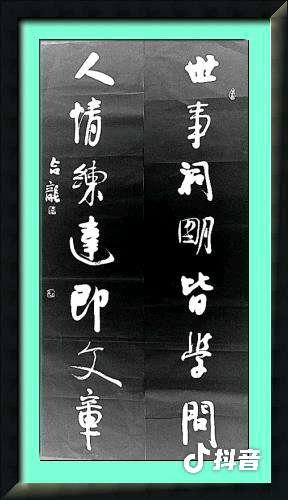 世事洞明皆学問
人情練達即文章
抖音